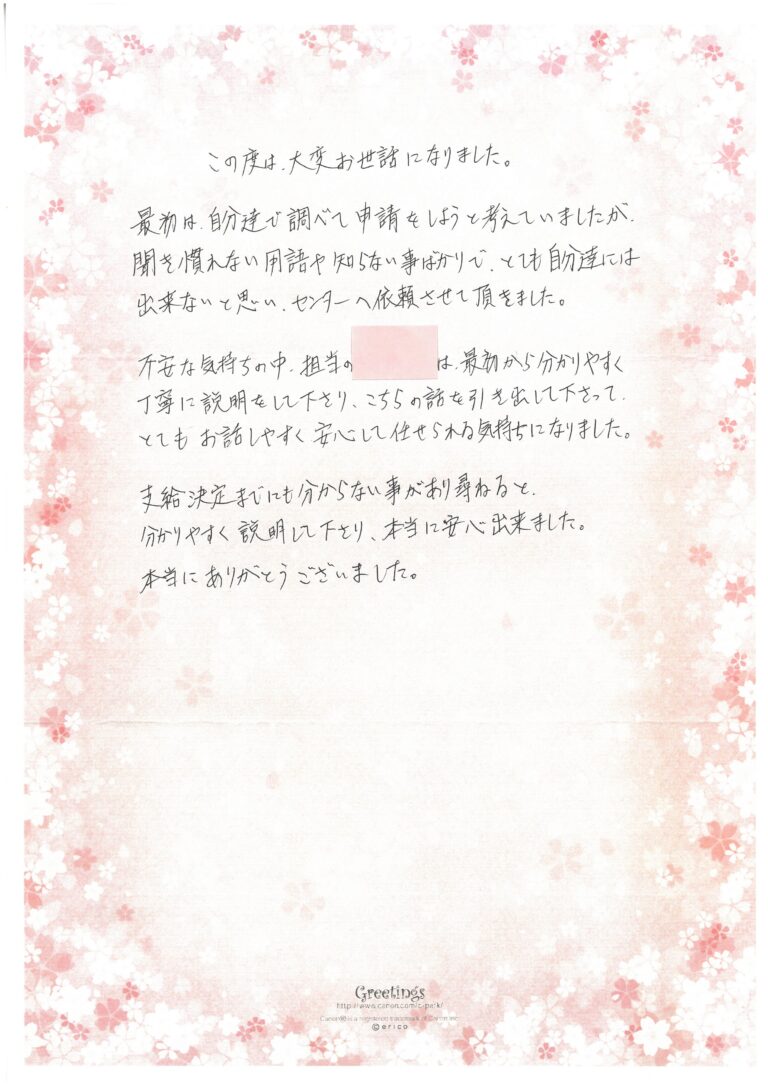 この度は、大変お世話になりました。
最初は、自分達で調べて申請をしようと考えていましたが、
聞き慣れない用語や知らない事ばかりで、とても自分達には
出来ないと思い、センターへ依頼させて頂きました。
不安な気持ちの中、担当の
は、最初から分かりやすく
丁寧に説明をして下さり、こちらの話を引き出して下さって、
とてもお話しやすく安心して任せられる気持ちになりました。
支給決定までにも分からない事があり尋ねると、
分かりやすく説明して下さり、本当に安心出来ました。
本当にありがとうございました。
Greetings
http://www.canon.com/c-park/
Canon® is a registered trademark of Canon Inc.
©erico